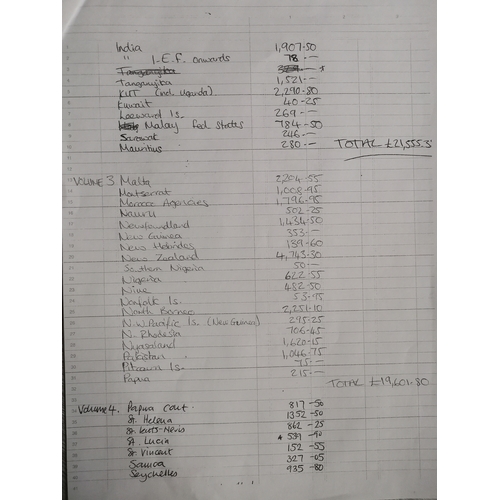 India 1,907.50
" I.E.F. onwards 78.—
Tanganyika
Tanganyika 1,521.—
KUT (incl. Uganda) 2,290.80
Kuwait 40-25
Leeward Is. 269.—
Malay Fed States 784-50
Sarawak 246.—
Mauritius 280.— TOTAL £21,555.5
VOLUME 3 Malta 2,204.55
Montserrat 1,008.95
Morocco Agencies 1,796.95
Nauru 502.25
Newfoundland 1,434.50
New Guinea 353.—
New Hebrides 139.60
New Zealand 4,743.50
Southern Nigeria 50.—
Nigeria 622.55
Niue 482.50
Norfolk Is. 53.95
North Borneo 2,251.10
N.W. Pacific Is. (New Guinea) 295.25
N. Rhodesia 706.45
Nyasaland 1,620.15
Pakistan 1,046.75
Pitcairn Is. 75.—
Papua 215.—
TOTAL £19,601.80
Volume 4. Papua cont. 817-50
St. Helena 1352-50
St. Kitts-Nevis 862-25
St. Lucia 539-90
St. Vincent 152-55
Samoa 327-05
Seychelles 935-80